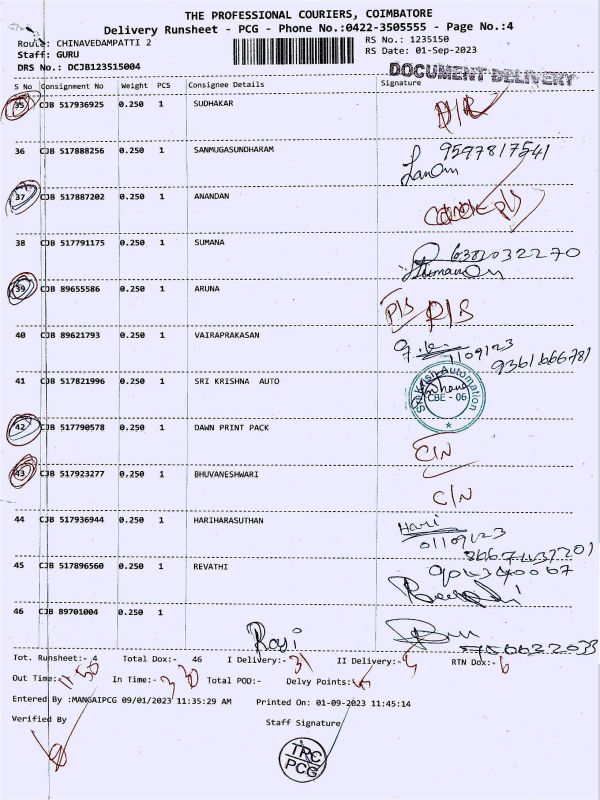 THE PROFESSIONAL COURIERS, COIMBATORE
Delivery Runsheet - PCG - Phone No.:0422-3505555 - Page No.:4
Route: CHINAVEDAMPATTI 2
RS No.: 1235150
Staff: GURU
RS Date: 01-Sep-2023
DRS No.: DCJB123515004
DOCUMENT DELIVERY
S No Consignment No Weight PCS Consignee Details Signature
35 CJB 517936925 0.250 1 SUDHAKAR
36 CJB 517888256 0.250 1 SANMUGASUNDHARAM 9597817541
37 CJB 517887202 0.250 1 ANANDAN
38 CJB 517791175 0.250 1 SUMANA 6382032270
39 CJB 89655586 0.250 1 ARUNA P/S P/S
40 CJB 89621793 0.250 1 VAIRAPRAKASAN
1109123
9361666781
41 CJB 517821996 0.250 1 SRI KRISHNA AUTO
Sri Krish Automation
CBE - 06
42 CJB 517790578 0.250 1 DAWN PRINT PACK C/N
43 CJB 517923277 0.250 1 BHUVANESHWARI C/N
44 CJB 517936944 0.250 1 HARIHARASUTHAN Hari
01109123
45 CJB 517896560 0.250 1 REVATHI
46 CJB 89701004 0.250 1
Tot. Runsheet:- 4 Total Dox:- 46 I Delivery:- 31 II Delivery:- 9 RTN Dox:- 6
Out Time: 11.50 In Time:- 3.30 Total POD:- Delvy Points:-
Entered By :MANGAIPCG 09/01/2023 11:35:29 AM Printed On: 01-09-2023 11:45:14
Verified By Staff Signature
TRC
PCG